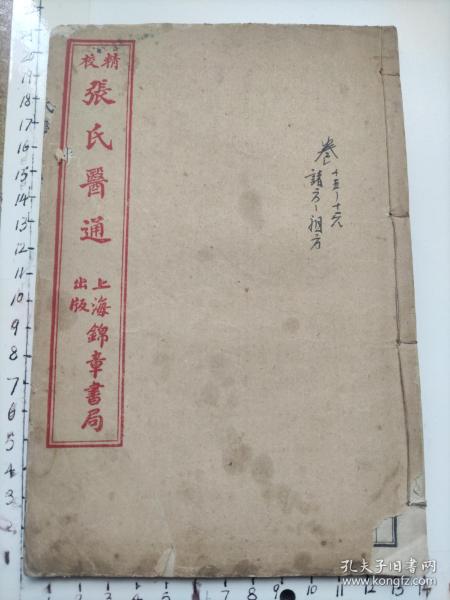 精校
張氏醫通
上海錦章書局
出版
卷十五~十六
諸方~祖方
20
19
18
17
16
15
14
13
12
11
10
9
8
7
6
5
4
3
2
7
8
9
10
11
12
13
14
孔夫子旧书网